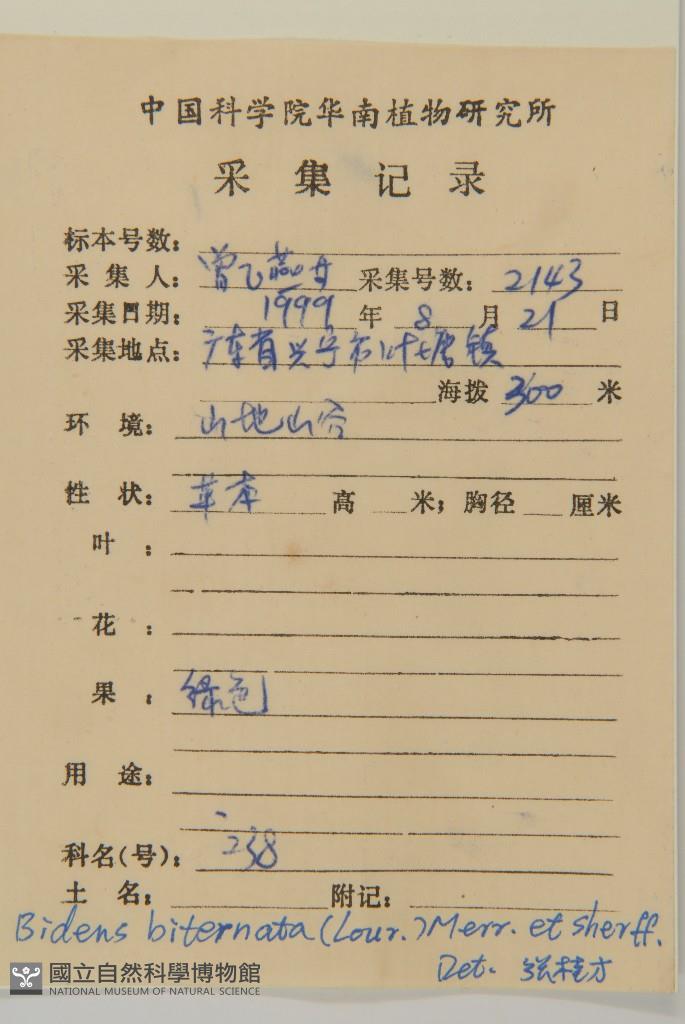 中国科学院华南植物研究所
采集记录
标本号数：
采集人：曾飞燕 采集号数：2143
采集日期：1999年8月21日
采集地点：广东省兴宁市叶塘镇
海拨300米
环境：山地山谷
性状：草本 高 米；胸径 厘米
叶：
花：
果：绿色
用途：
科名(号)：238
土名： 附记：
Bidens biternata (Lour.) Merr. et Sherff.
Det. 张桂才
國立自然科學博物館
NATIONAL MUSEUM OF NATURAL SCIENCE